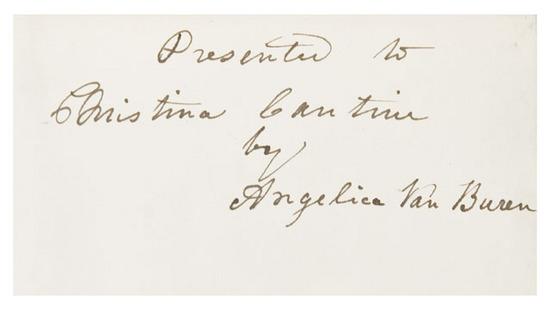 Presented to
Christina Cantine
by
Angelica Van Buren